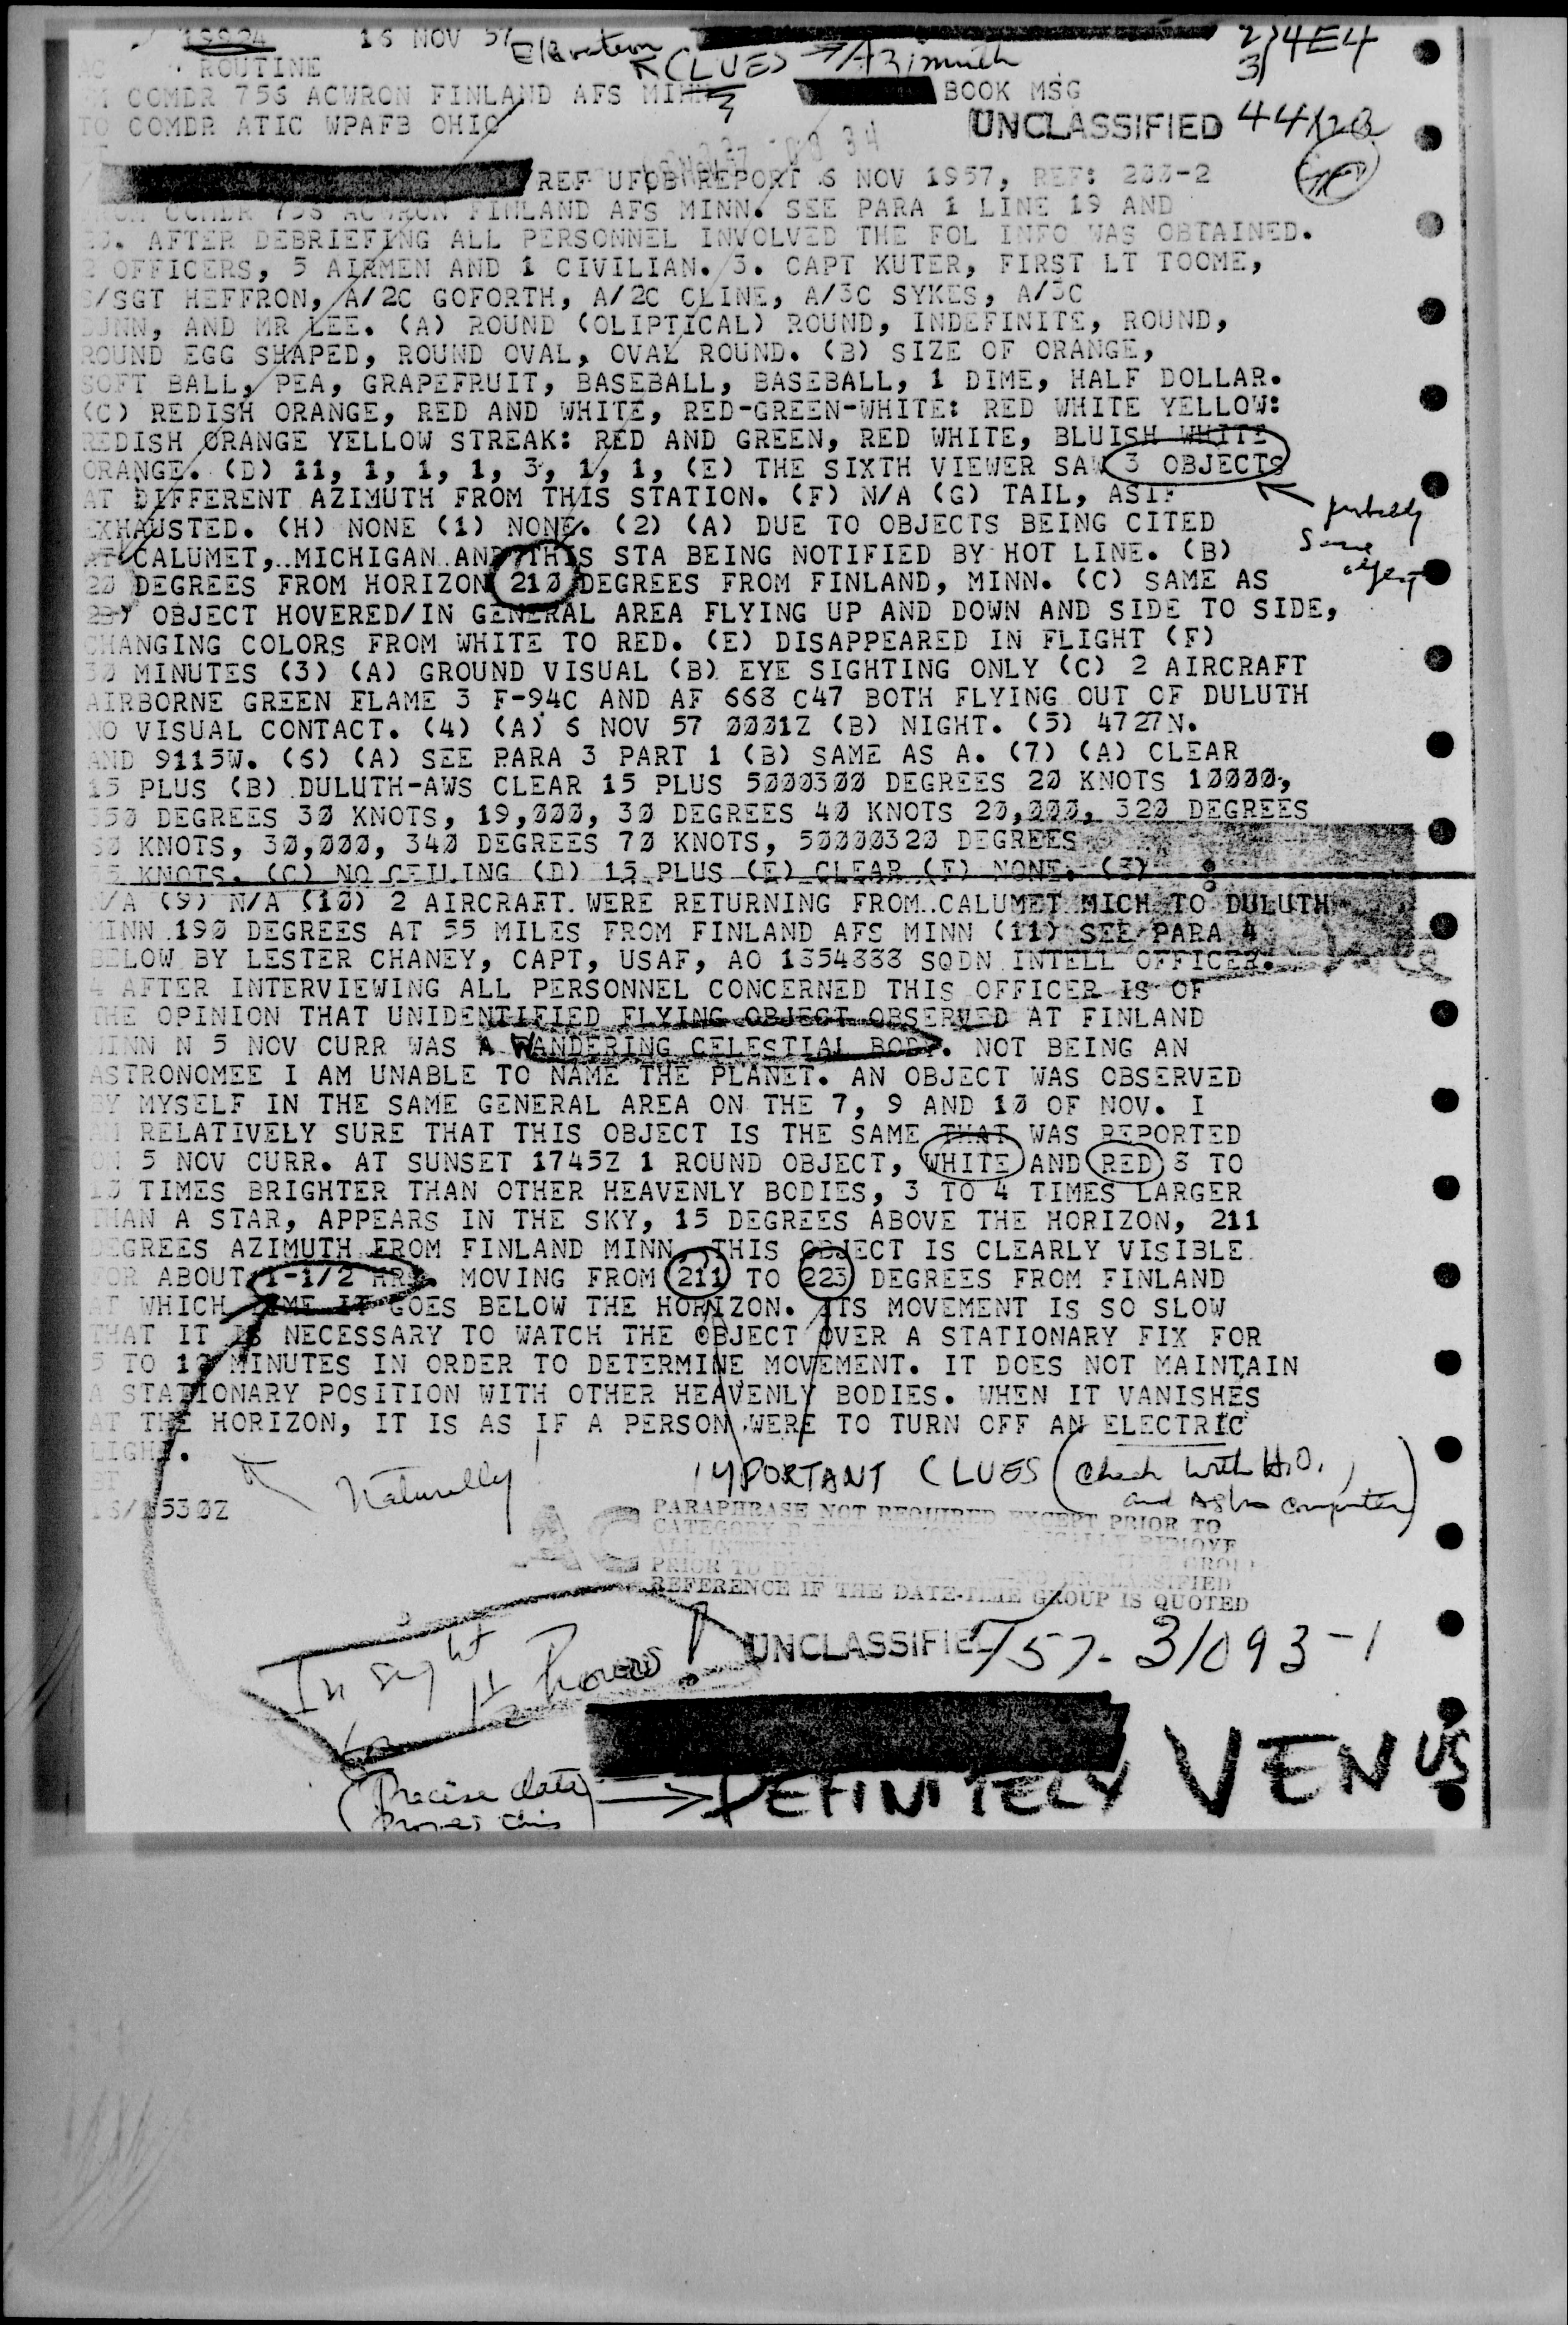 19924 16 NOV 57 Elevation CLUES → Azimuth 2) 4E4
3)
ROUTINE
COMDR 756 ACWRON FINLAND AFS MINN BOOK MSG
TO COMDR ATIC WPAFB OHIO UNCLASSIFIED
/REF UFOB REPORT 6 NOV 1957, REF: 233-2
COMDR 756 ACWRON FINLAND AFS MINN. SEE PARA 1 LINE 19 AND
AFTER DEBRIEFING ALL PERSONNEL INVOLVED THE FOL INFO WAS OBTAINED.
2 OFFICERS, 5 AIRMEN AND 1 CIVILIAN. 3. CAPT KUTER, FIRST LT TOOME,
S/SGT HEFFRON, A/2C GOFORTH, A/2C CLINE, A/3C SYKES, A/3C
DUNN, AND MR LEE. (A) ROUND (OLIPTICAL) ROUND, INDEFINITE, ROUND,
ROUND EGG SHAPED, ROUND OVAL, OVAL ROUND. (B) SIZE OF ORANGE,
SOFT BALL, PEA, GRAPEFRUIT, BASEBALL, BASEBALL, 1 DIME, HALF DOLLAR.
(C) REDISH ORANGE, RED AND WHITE, RED-GREEN-WHITE: RED WHITE YELLOW:
REDISH ORANGE YELLOW STREAK: RED AND GREEN, RED WHITE, BLUISH WHITE
ORANGE. (D) 11, 1, 1, 1, 3, 1, 1, (E) THE SIXTH VIEWER SAW 3 OBJECTS
AT DIFFERENT AZIMUTH FROM THIS STATION. (F) N/A (G) TAIL, ASIF
EXHAUSTED. (H) NONE (1) NONE. (2) (A) DUE TO OBJECTS BEING CITED
probably
same
object
AT CALUMET, MICHIGAN AND THIS STA BEING NOTIFIED BY HOT LINE. (B)
20 DEGREES FROM HORIZON 210 DEGREES FROM FINLAND, MINN. (C) SAME AS
OBJECT HOVERED/IN GENERAL AREA FLYING UP AND DOWN AND SIDE TO SIDE,
CHANGING COLORS FROM WHITE TO RED. (E) DISAPPEARED IN FLIGHT (F)
30 MINUTES (3) (A) GROUND VISUAL (B) EYE SIGHTING ONLY (C) 2 AIRCRAFT
AIRBORNE GREEN FLAME 3 F-94C AND AF 668 C47 BOTH FLYING OUT OF DULUTH
NO VISUAL CONTACT. (4) (A) 6 NOV 57 0001Z (B) NIGHT. (5) 4727N.
AND 9115W. (6) (A) SEE PARA 3 PART 1 (B) SAME AS A. (7) (A) CLEAR
15 PLUS (B) DULUTH-AWS CLEAR 15 PLUS 5000300 DEGREES 20 KNOTS 10000,
350 DEGREES 30 KNOTS, 19,000, 30 DEGREES 40 KNOTS 20,000, 320 DEGREES
KNOTS, 30,000, 340 DEGREES 70 KNOTS, 50000320 DEGREES
KNOTS. (C) NO CEILING (D) 15 PLUS (E) CLEAR (F) NONE. (8)
N/A (9) N/A (10) 2 AIRCRAFT WERE RETURNING FROM CALUMET MICH TO DULUTH
MINN 190 DEGREES AT 55 MILES FROM FINLAND AFS MINN (11) SEE PARA 4
BELOW BY LESTER CHANEY, CAPT, USAF, AO 1854888 SQDN INTELL OFFICER.
4 AFTER INTERVIEWING ALL PERSONNEL CONCERNED THIS OFFICER IS OF
THE OPINION THAT UNIDENTIFIED FLYING OBJECT OBSERVED AT FINLAND
MINN N 5 NOV CURR WAS A WANDERING CELESTIAL BODY. NOT BEING AN
ASTRONOMEE I AM UNABLE TO NAME THE PLANET. AN OBJECT WAS OBSERVED
BY MYSELF IN THE SAME GENERAL AREA ON THE 7, 9 AND 10 OF NOV. I
AM RELATIVELY SURE THAT THIS OBJECT IS THE SAME THAT WAS REPORTED
ON 5 NOV CURR. AT SUNSET 1745Z 1 ROUND OBJECT, WHITE AND RED 8 TO
10 TIMES BRIGHTER THAN OTHER HEAVENLY BODIES, 3 TO 4 TIMES LARGER
THAN A STAR, APPEARS IN THE SKY, 15 DEGREES ABOVE THE HORIZON, 211
DEGREES AZIMUTH FROM FINLAND MINN. THIS OBJECT IS CLEARLY VISIBLE
FOR ABOUT 1-1/2 HRS. MOVING FROM 211 TO 223 DEGREES FROM FINLAND
AT WHICH TIME IT GOES BELOW THE HORIZON. ITS MOVEMENT IS SO SLOW
THAT IT IS NECESSARY TO WATCH THE OBJECT OVER A STATIONARY FIX FOR
5 TO 10 MINUTES IN ORDER TO DETERMINE MOVEMENT. IT DOES NOT MAINTAIN
A STATIONARY POSITION WITH OTHER HEAVENLY BODIES. WHEN IT VANISHES
AT THE HORIZON, IT IS AS IF A PERSON WERE TO TURN OFF AN ELECTRIC
LIGHT.
Naturally! IMPORTANT CLUES (Check with H.O.
and Astro computer)
BT
16/1530Z
AC
PARAPHRASE NOT REQUIRED EXCEPT PRIOR TO
CATEGORY B
PRIOR TO UNCLASSIFIED
REFERENCE IF THE DATE-TIME GROUP IS QUOTED
UNCLASSIFIED T57-31093-1
In sight
for 1½ hours!
(Precise data
proves this) → DEFINITELY VENUS